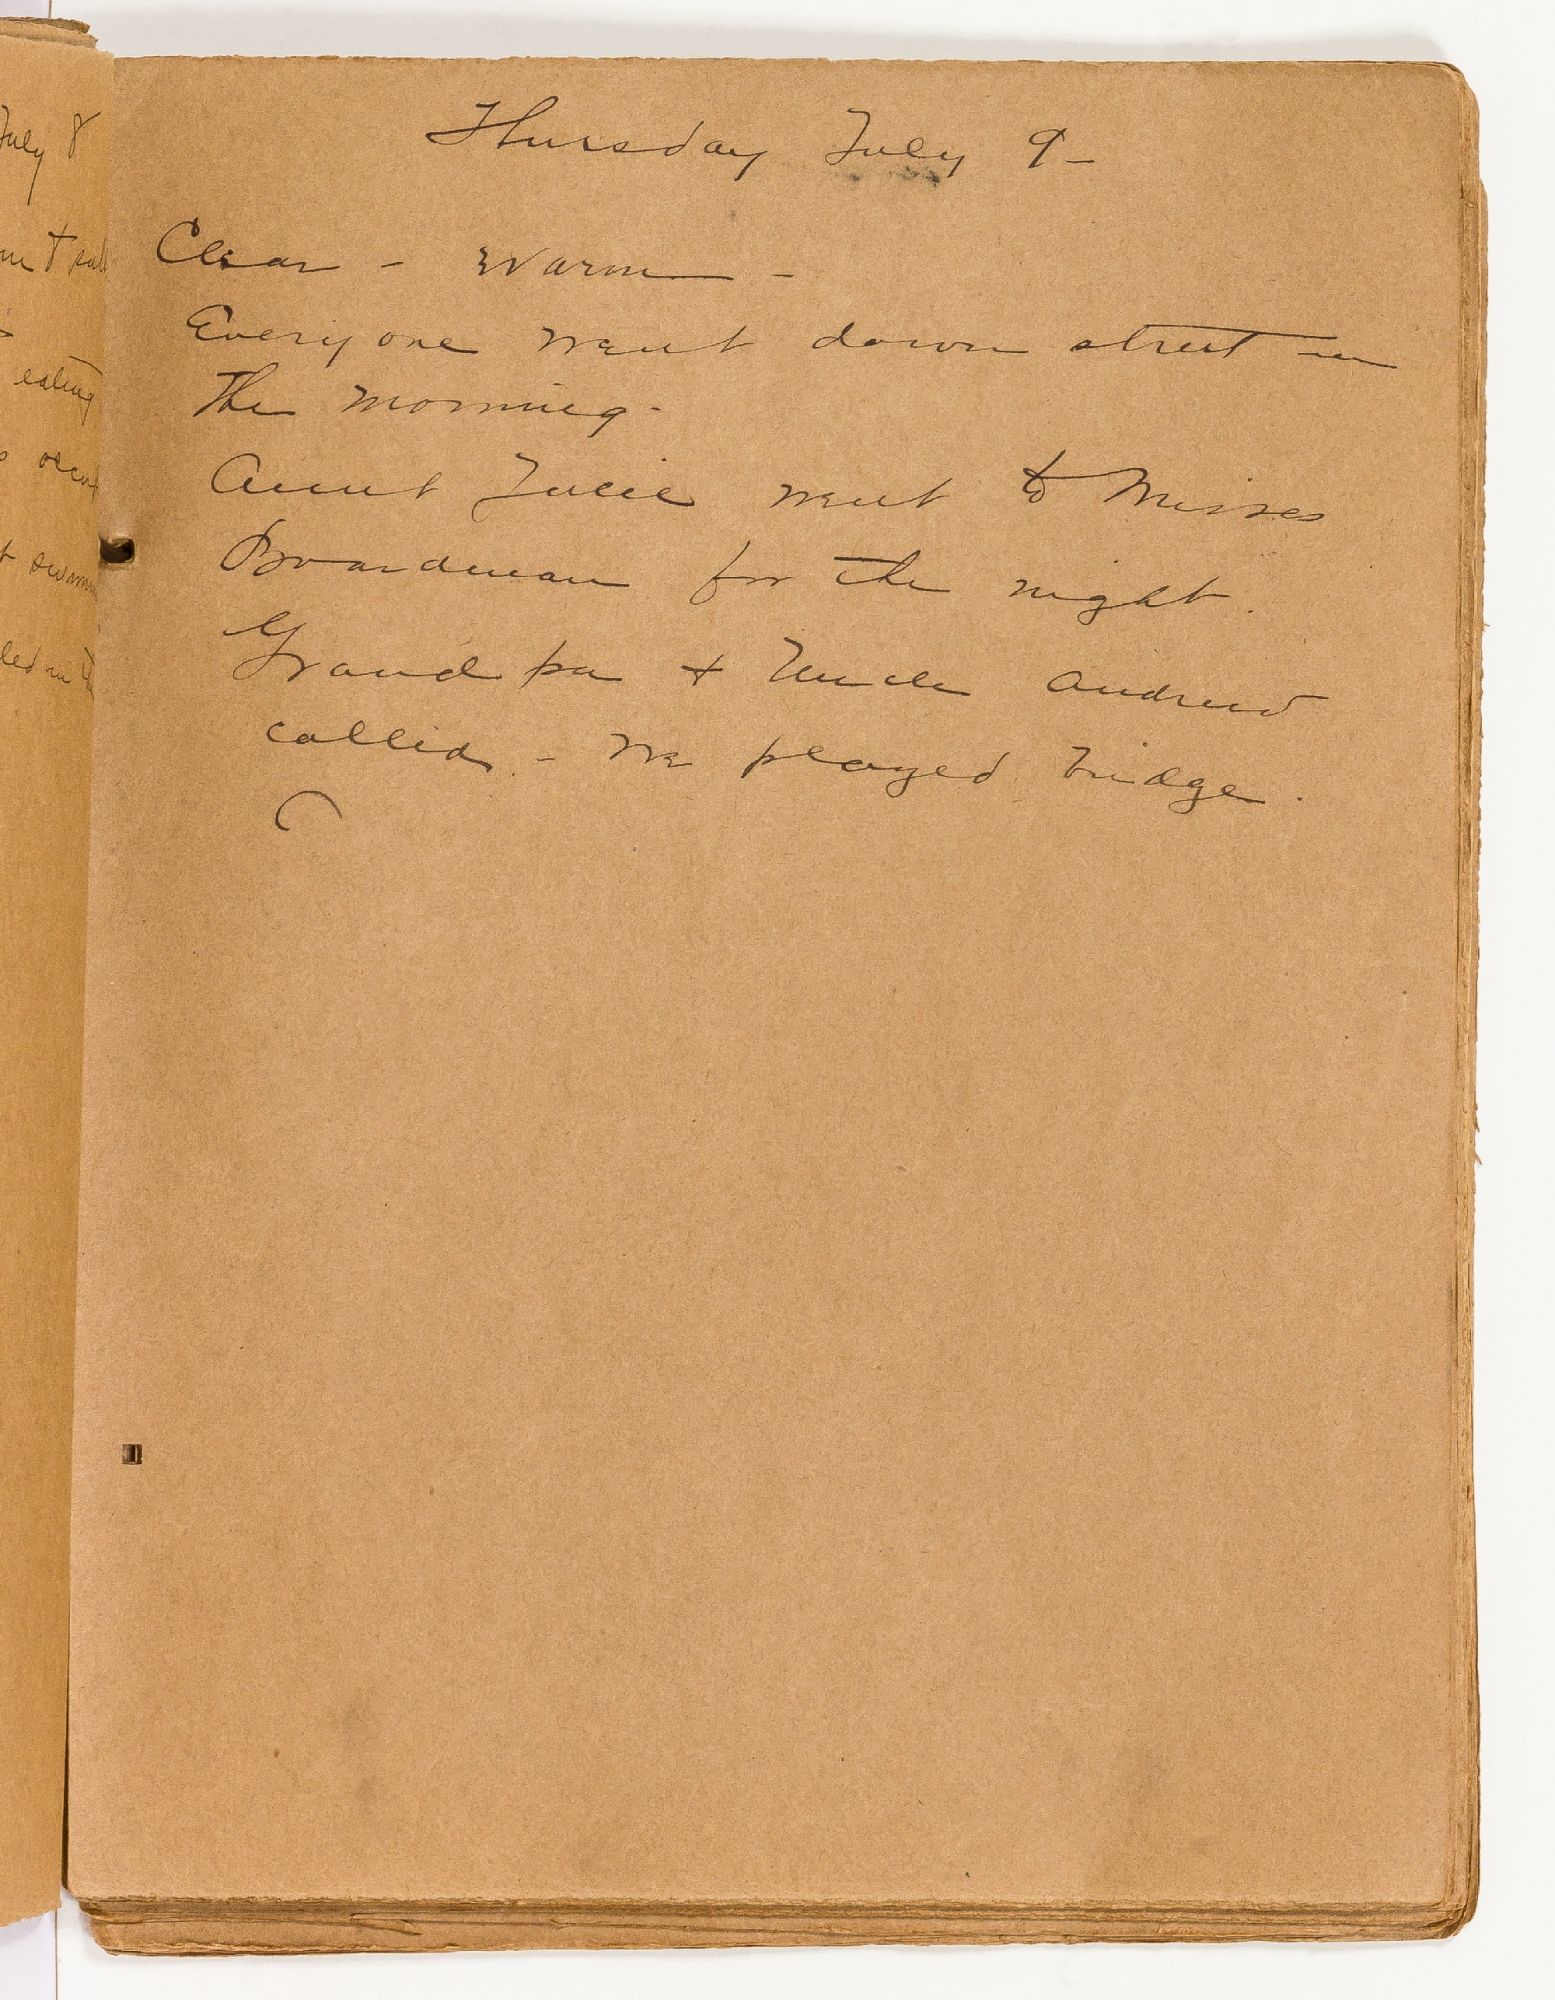 July 8
eating
Thursday July 9-
Clear - warm -
Everyone went down street in
the morning.
Aunt Julie went to Misses
Boardman for the night.
Grandpa + Uncle Andrew
called. - We played bridge.